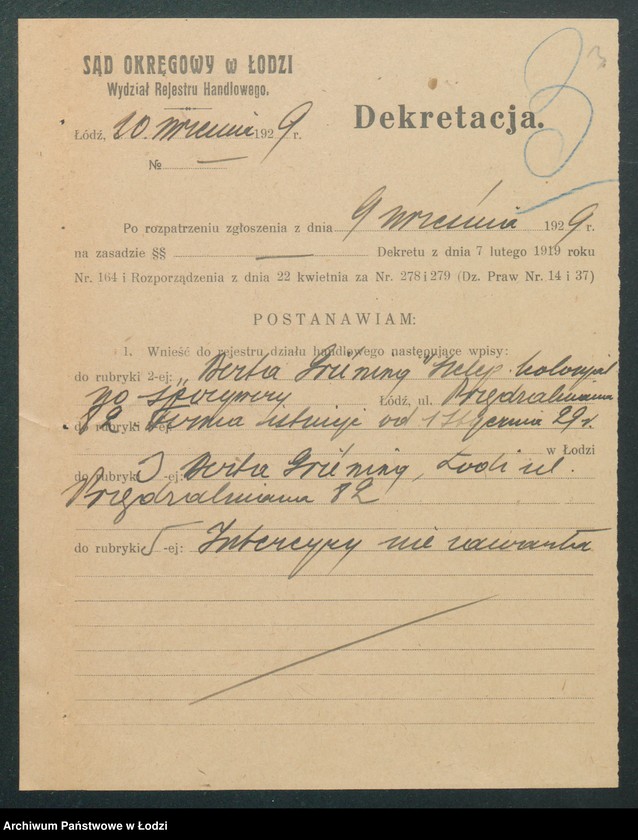 3
3
SĄD OKRĘGOWY w ŁODZI
Wydział Rejestru Handlowego.
Dekretacja.
Łódź, 20 wrześni 1929 r.
№ —
Po rozpatrzeniu zgłoszenia z dnia 9 września 1929 r.
na zasadzie §§ — Dekretu z dnia 7 lutego 1919 roku
Nr. 164 i Rozporządzenia z dnia 22 kwietnia za Nr. 278 i 279 (Dz. Praw Nr. 14 i 37)
POSTANAWIAM:
1. Wnieść do rejestru działu handlowego następujące wpisy:
do rubryki 2-ej: „Berta Grüning" Sklep kolonjal
no spożywczy Łódź, ul. Przędzalniana
82. Firma istnieje od 1 stycznia 29 r.
do rubryki -ej:
w Łodzi
do rubryki 3-ej: Berta Grüning, Łódź ul.
Przędzalniana 82
do rubryki 5-ej: Intercyzy nie zawarła
Archiwum Państwowe w Łodzi